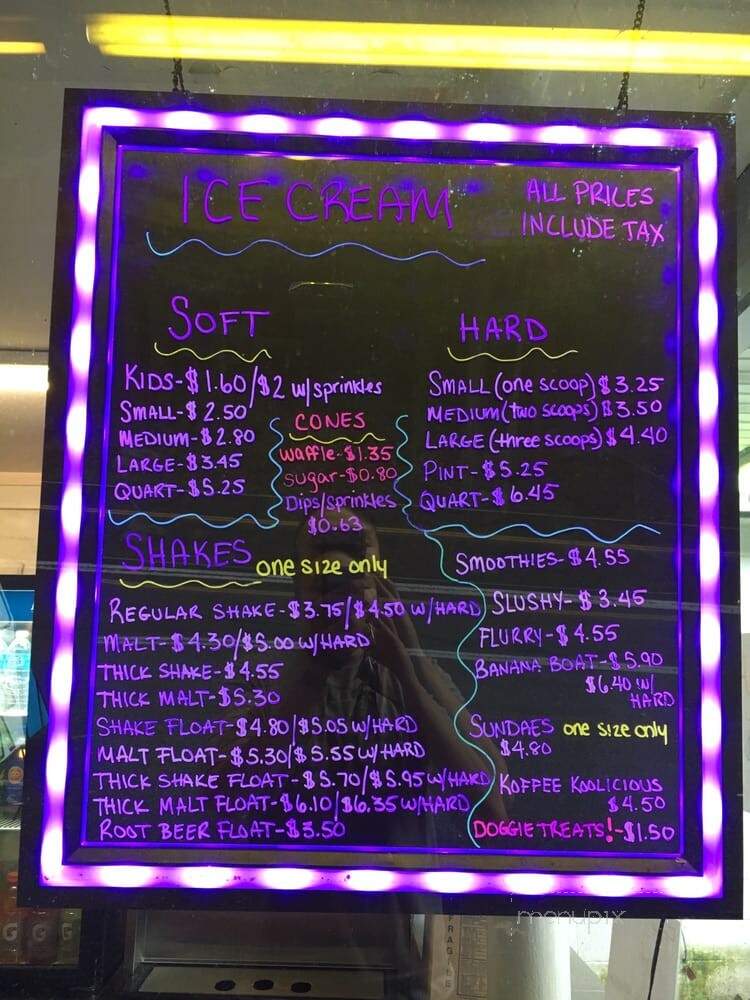 ICE CREAM
ALL PRICES
INCLUDE TAX
SOFT
KIDS-$1.60/$2 w/sprinkles
SMALL-$2.50
MEDIUM-$2.80
LARGE-$3.45
QUART-$5.25
CONES
waffle-$1.35
sugar-$0.80
Dips/sprinkles
$0.63
HARD
SMALL (one scoop) $3.25
MEDIUM (two scoops) $3.50
LARGE (three scoops) $4.40
PINT-$5.25
QUART-$6.45
SHAKES one size only
REGULAR SHAKE-$3.75/$4.50 W/HARD
MALT-$4.30/$5.00 W/HARD
THICK SHAKE-$4.55
THICK MALT-$5.30
SHAKE FLOAT-$4.80/$5.05 W/HARD
MALT FLOAT-$5.30/$5.55 W/HARD
THICK SHAKE FLOAT-$5.70/$5.95 W/HARD
THICK MALT FLOAT-$6.10/$6.35 W/HARD
ROOT BEER FLOAT-$3.50
SMOOTHIES-$4.55
SLUSHY-$3.45
FLURRY-$4.55
BANANA BOAT-$5.90
$6.40 W/
HARD
SUNDAES one size only
$4.80
KOFFEE KOOLICIOUS
$4.50
DOGGIE TREATS!-$1.50
menupix
FRAGILE
G G